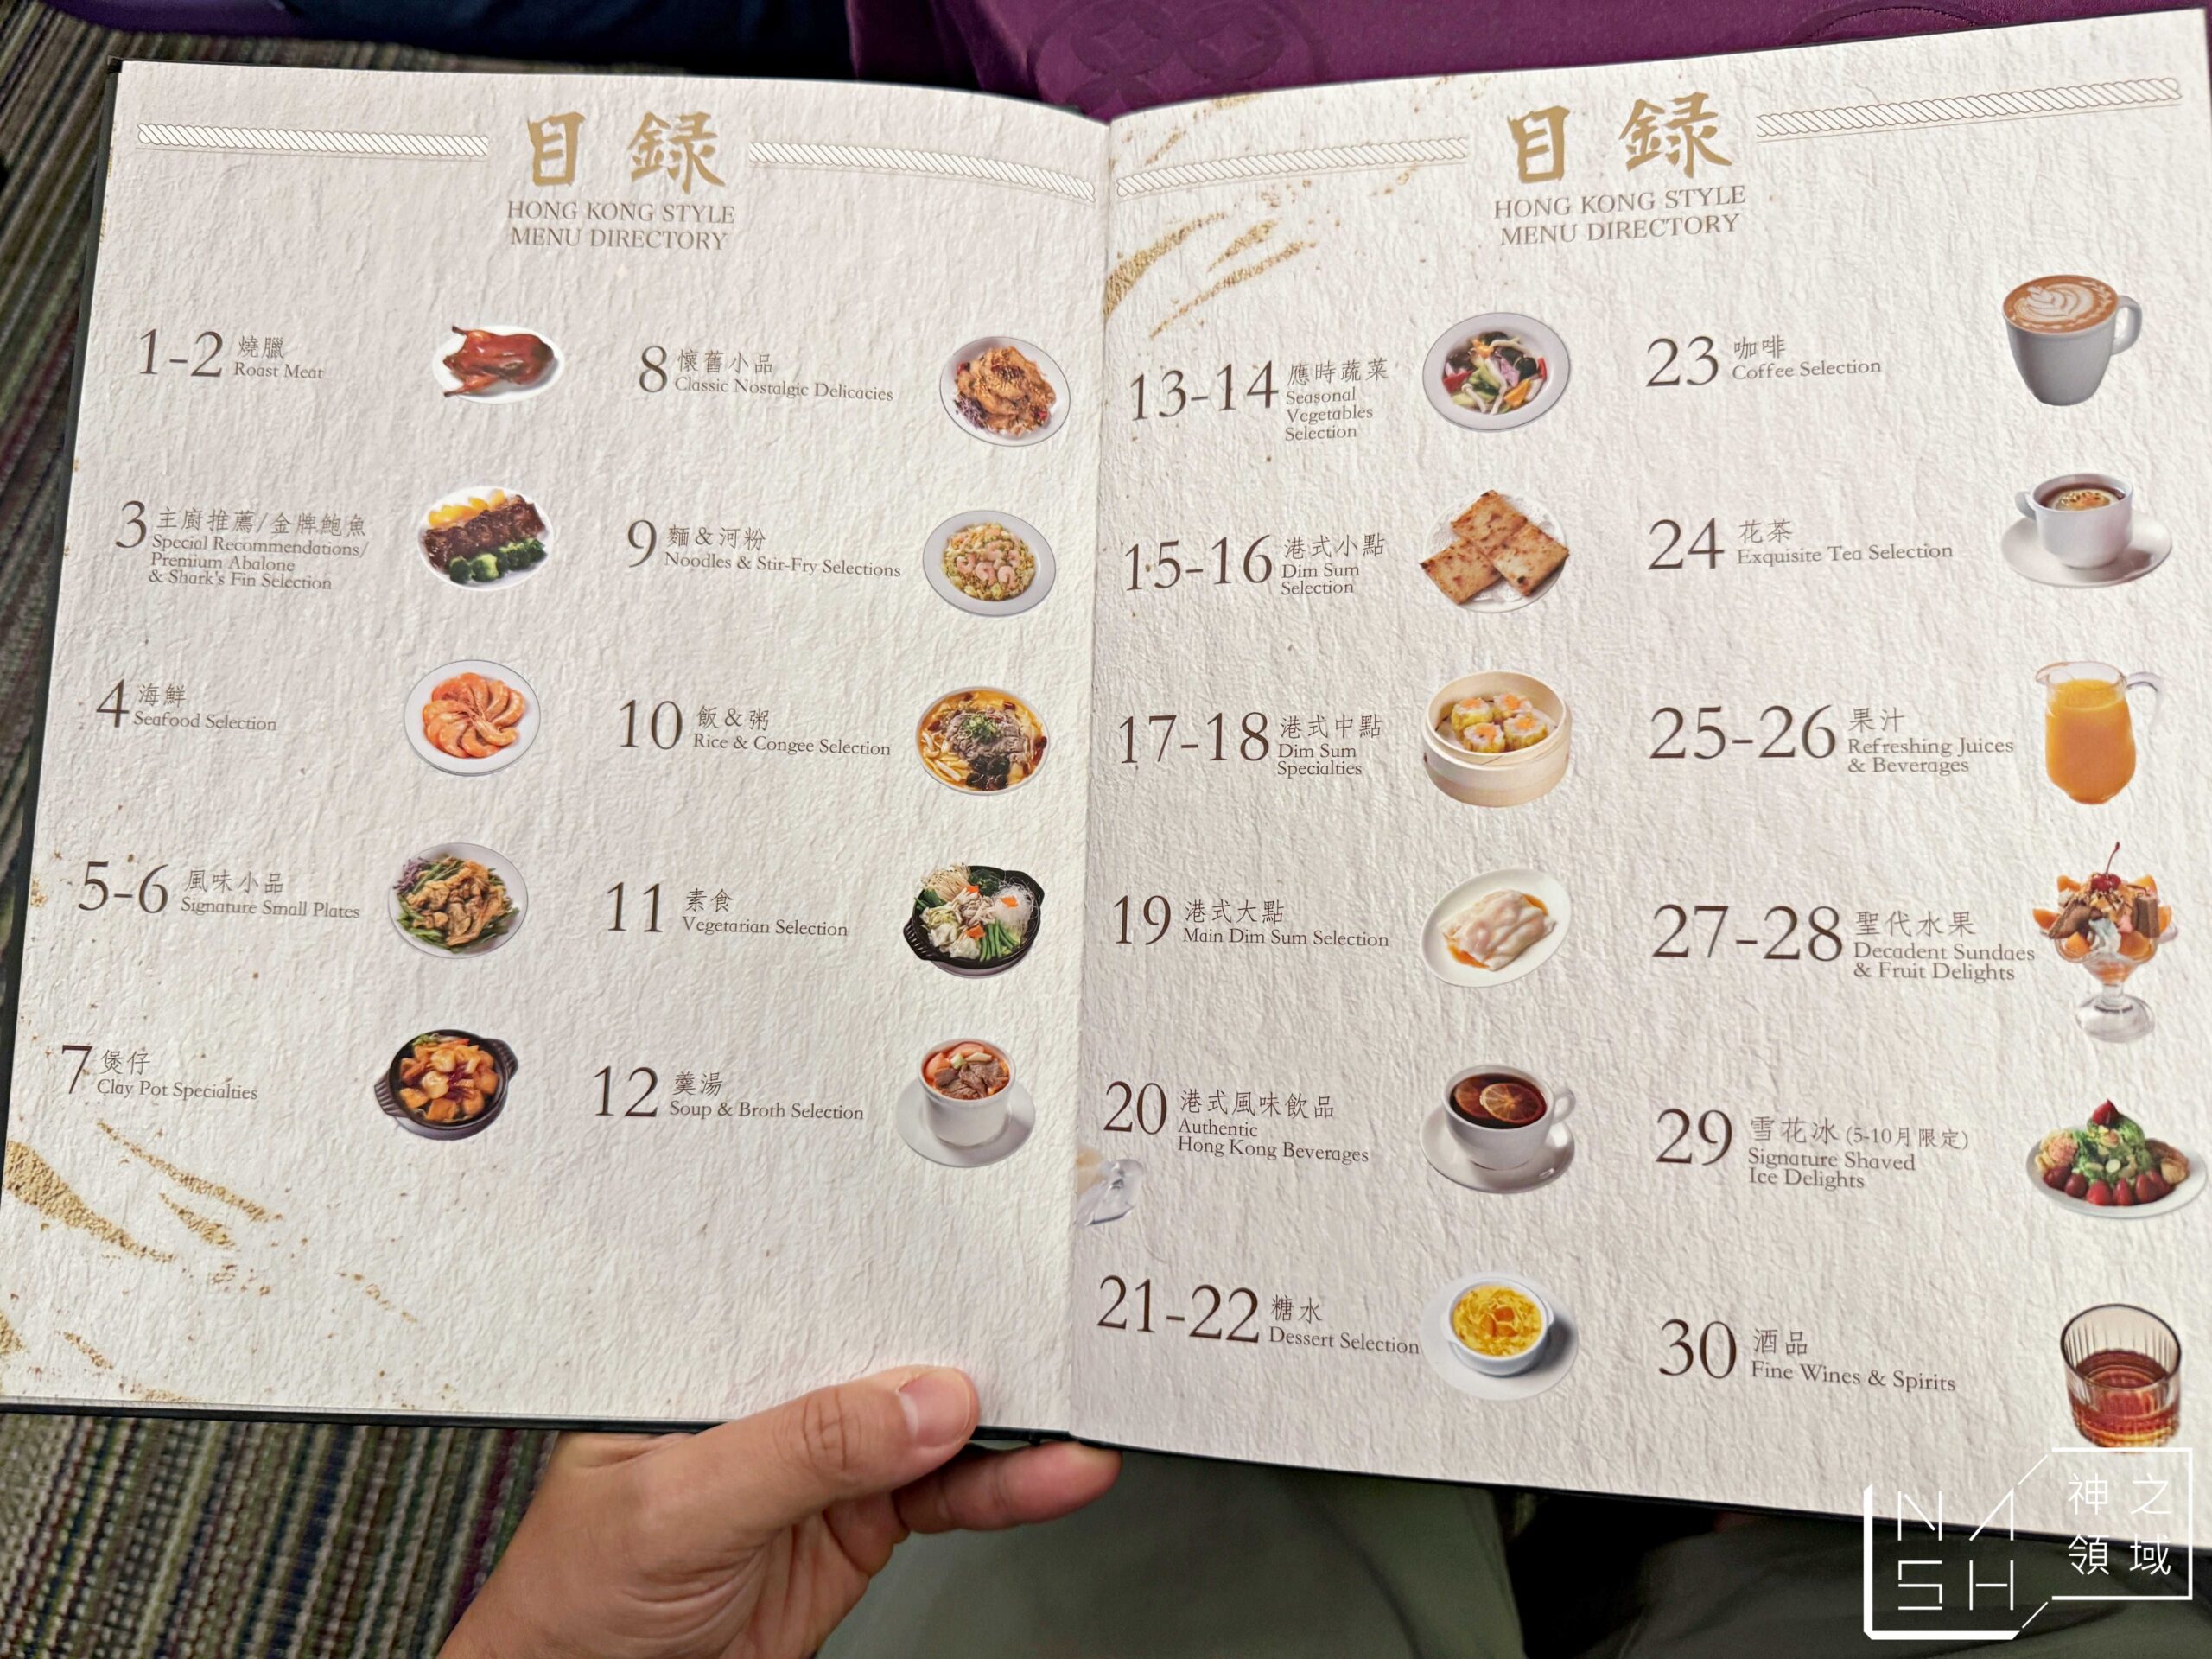 目錄
HONG KONG STYLE
MENU DIRECTORY
1-2 燒臘
Roast Meat
3 主廚推薦/金牌鮑魚
Special Recommendations/
Premium Abalone
& Shark's Fin Selection
4 海鮮
Seafood Selection
5-6 風味小品
Signature Small Plates
7 煲仔
Clay Pot Specialties
8 懷舊小品
Classic Nostalgic Delicacies
9 麵&河粉
Noodles & Stir-Fry Selections
10 飯&粥
Rice & Congee Selection
11 素食
Vegetarian Selection
12 羹湯
Soup & Broth Selection
目錄
HONG KONG STYLE
MENU DIRECTORY
13-14 應時蔬菜
Seasonal
Vegetables
Selection
15-16 港式小點
Dim Sum
Selection
17-18 港式中點
Dim Sum
Specialties
19 港式大點
Main Dim Sum Selection
20 港式風味飲品
Authentic
Hong Kong Beverages
21-22 糖水
Dessert Selection
23 咖啡
Coffee Selection
24 花茶
Exquisite Tea Selection
25-26 果汁
Refreshing Juices
& Beverages
27-28 聖代水果
Decadent Sundaes
& Fruit Delights
29 雪花冰(5-10月限定)
Signature Shaved
Ice Delights
30 酒品
Fine Wines & Spirits
NASH
神之
領域